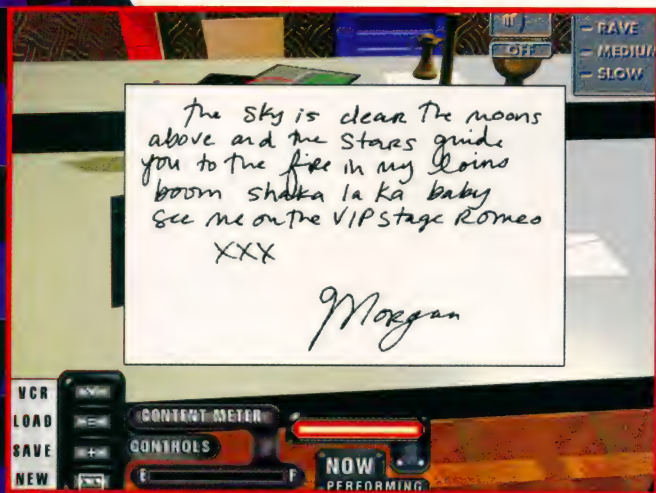 OFF
RAVE
MEDIUM
SLOW
the sky is clear The moons
above and the stars guide
you to the fire in my loins
boom shaka la ka baby
see me on the VIP stage Romeo
XXX
Morgan
VCR
LOAD
SAVE
NEW
CONTENT METER
CONTROLS
E F
NOW
PERFORMING